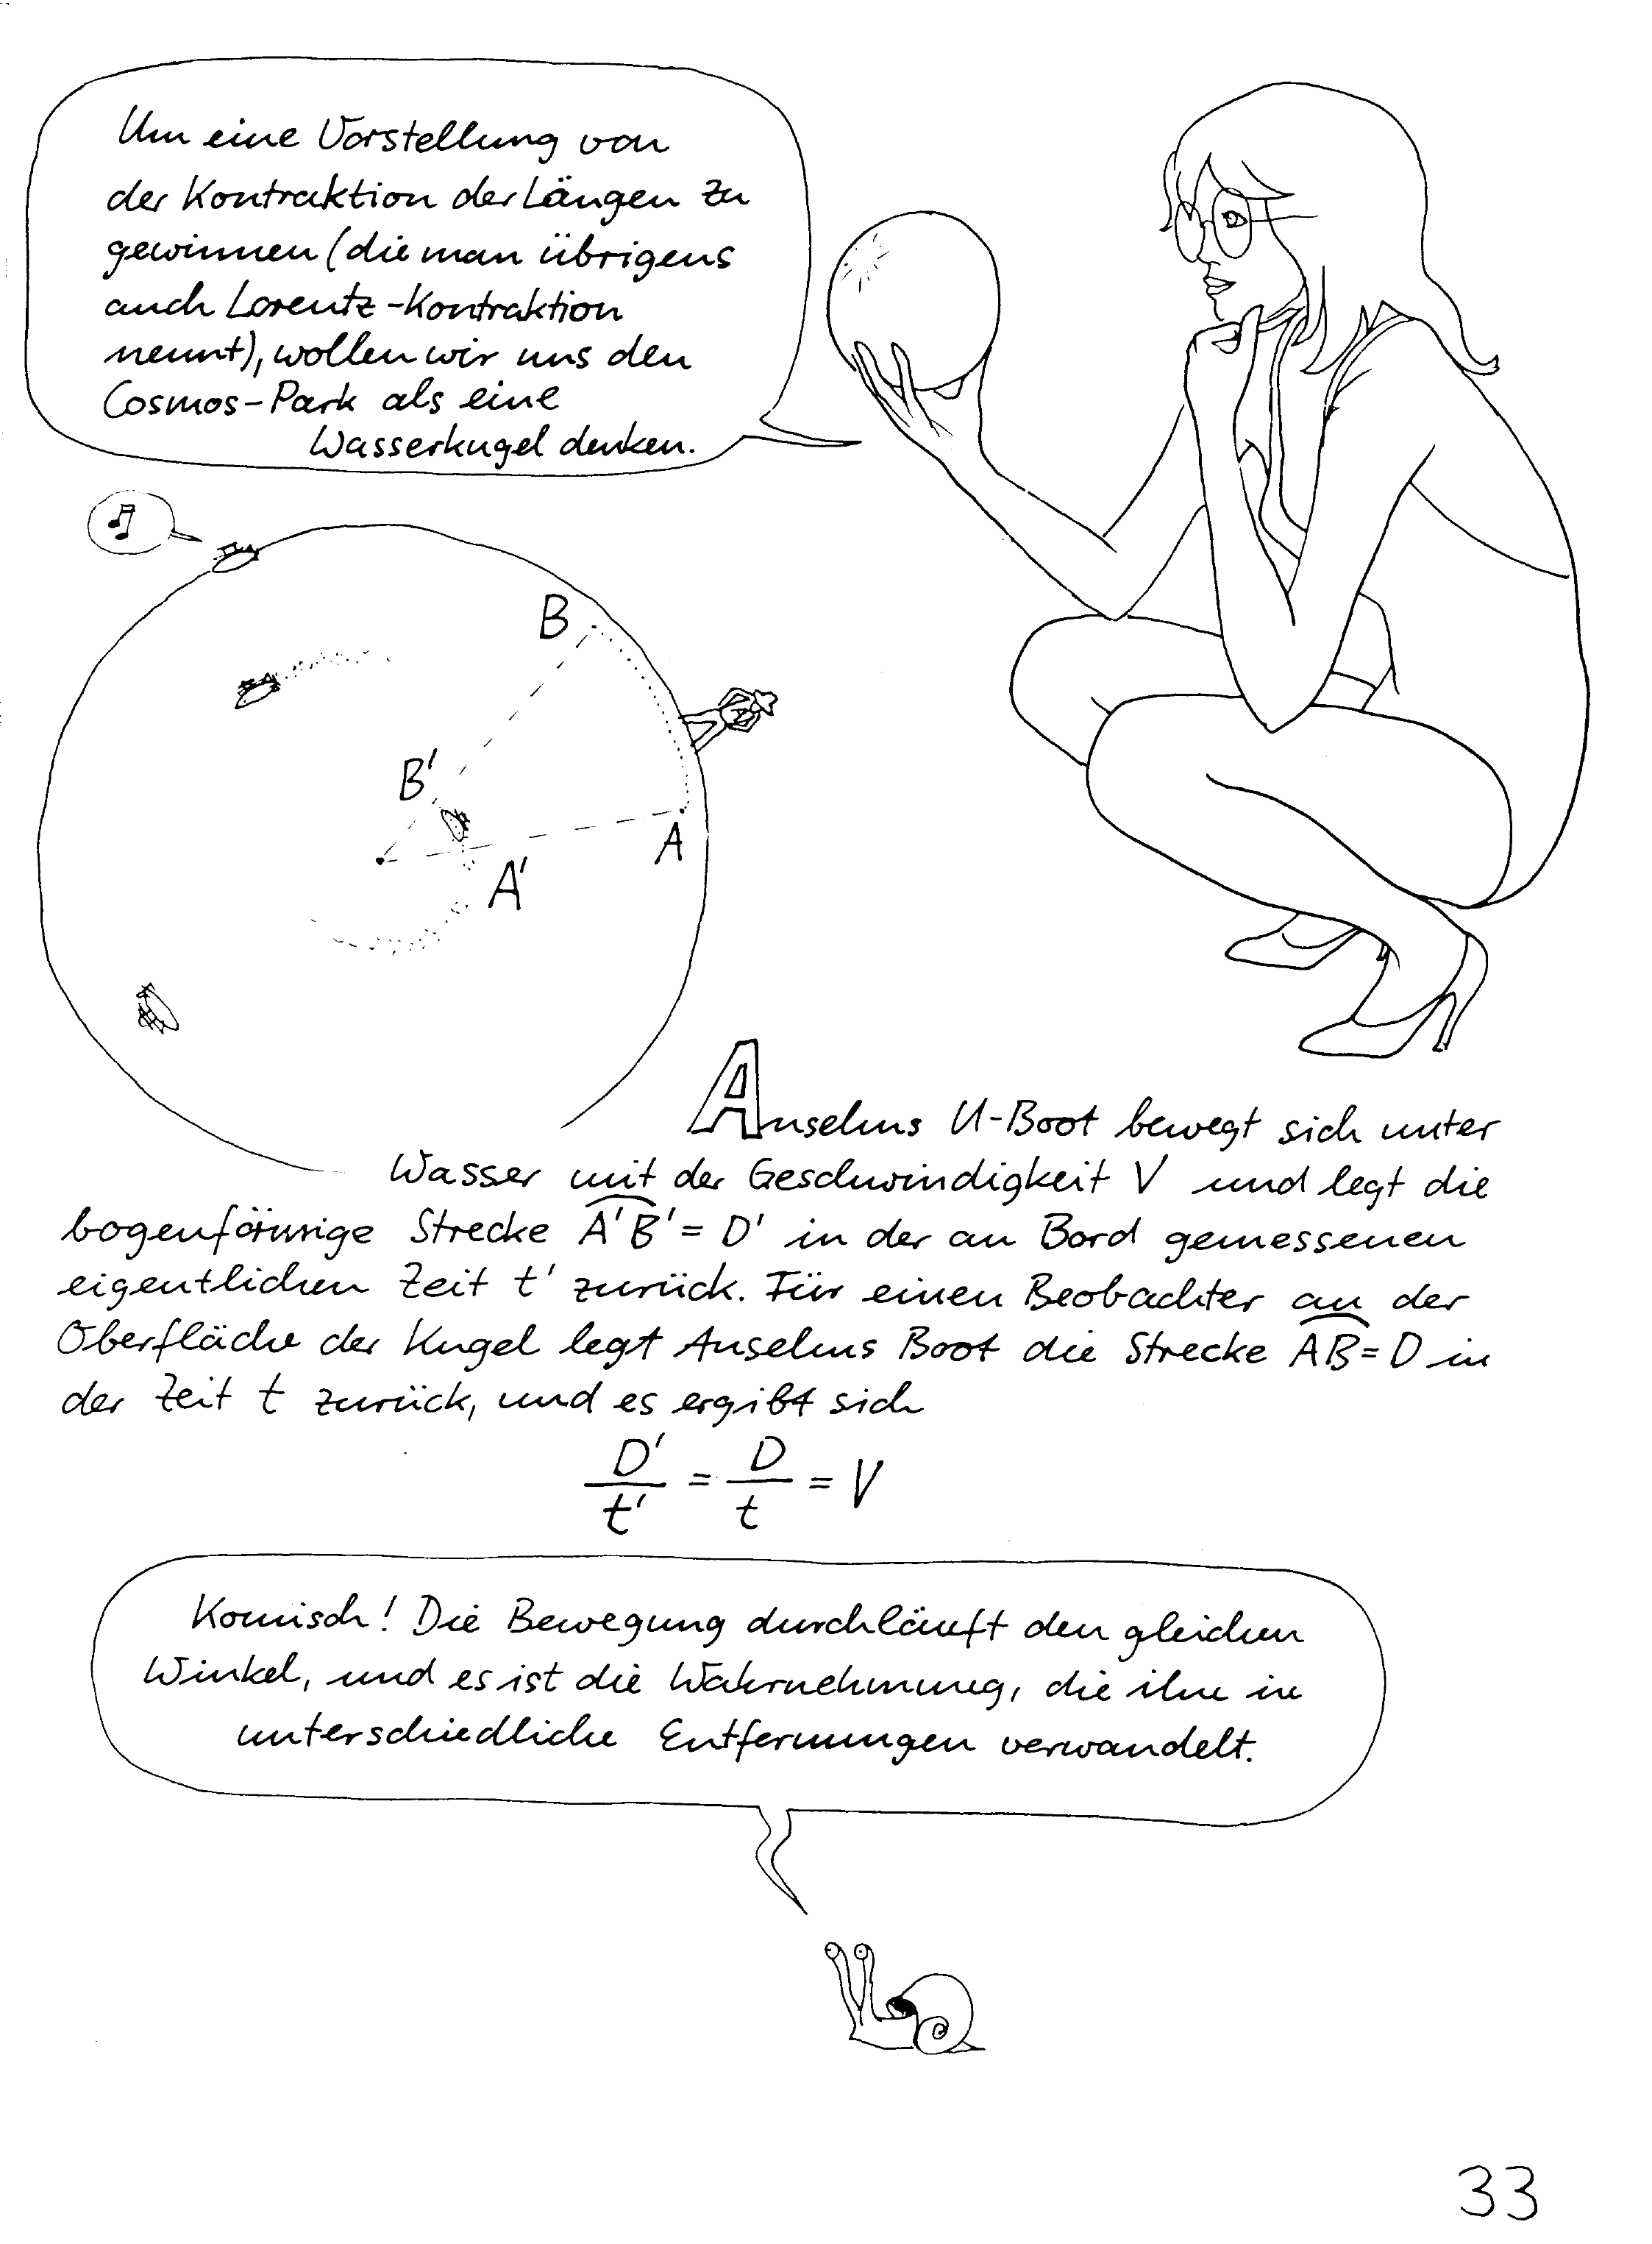 Um eine Vorstellung von
der Kontraktion der Längen zu
gewinnen (die man übrigens
auch Lorentz-Kontraktion
nennt), wollen wir uns den
Cosmos-Park als eine
Wasserkugel denken.
B
B'
A
A'
Anselms U-Boot bewegt sich unter
Wasser mit der Geschwindigkeit V und legt die
bogenförmige Strecke A'B' = D' in der an Bord gemessenen
eigentlichen Zeit t' zurück. Für einen Beobachter an der
Oberfläche der Kugel legt Anselms Boot die Strecke AB = D in
der Zeit t zurück, und es ergibt sich
D'/t' = D/t = V
Komisch! Die Bewegung durchläuft den gleichen
Winkel, und es ist die Wahrnehmung, die ihn in
unterschiedliche Entfernungen verwandelt.
33